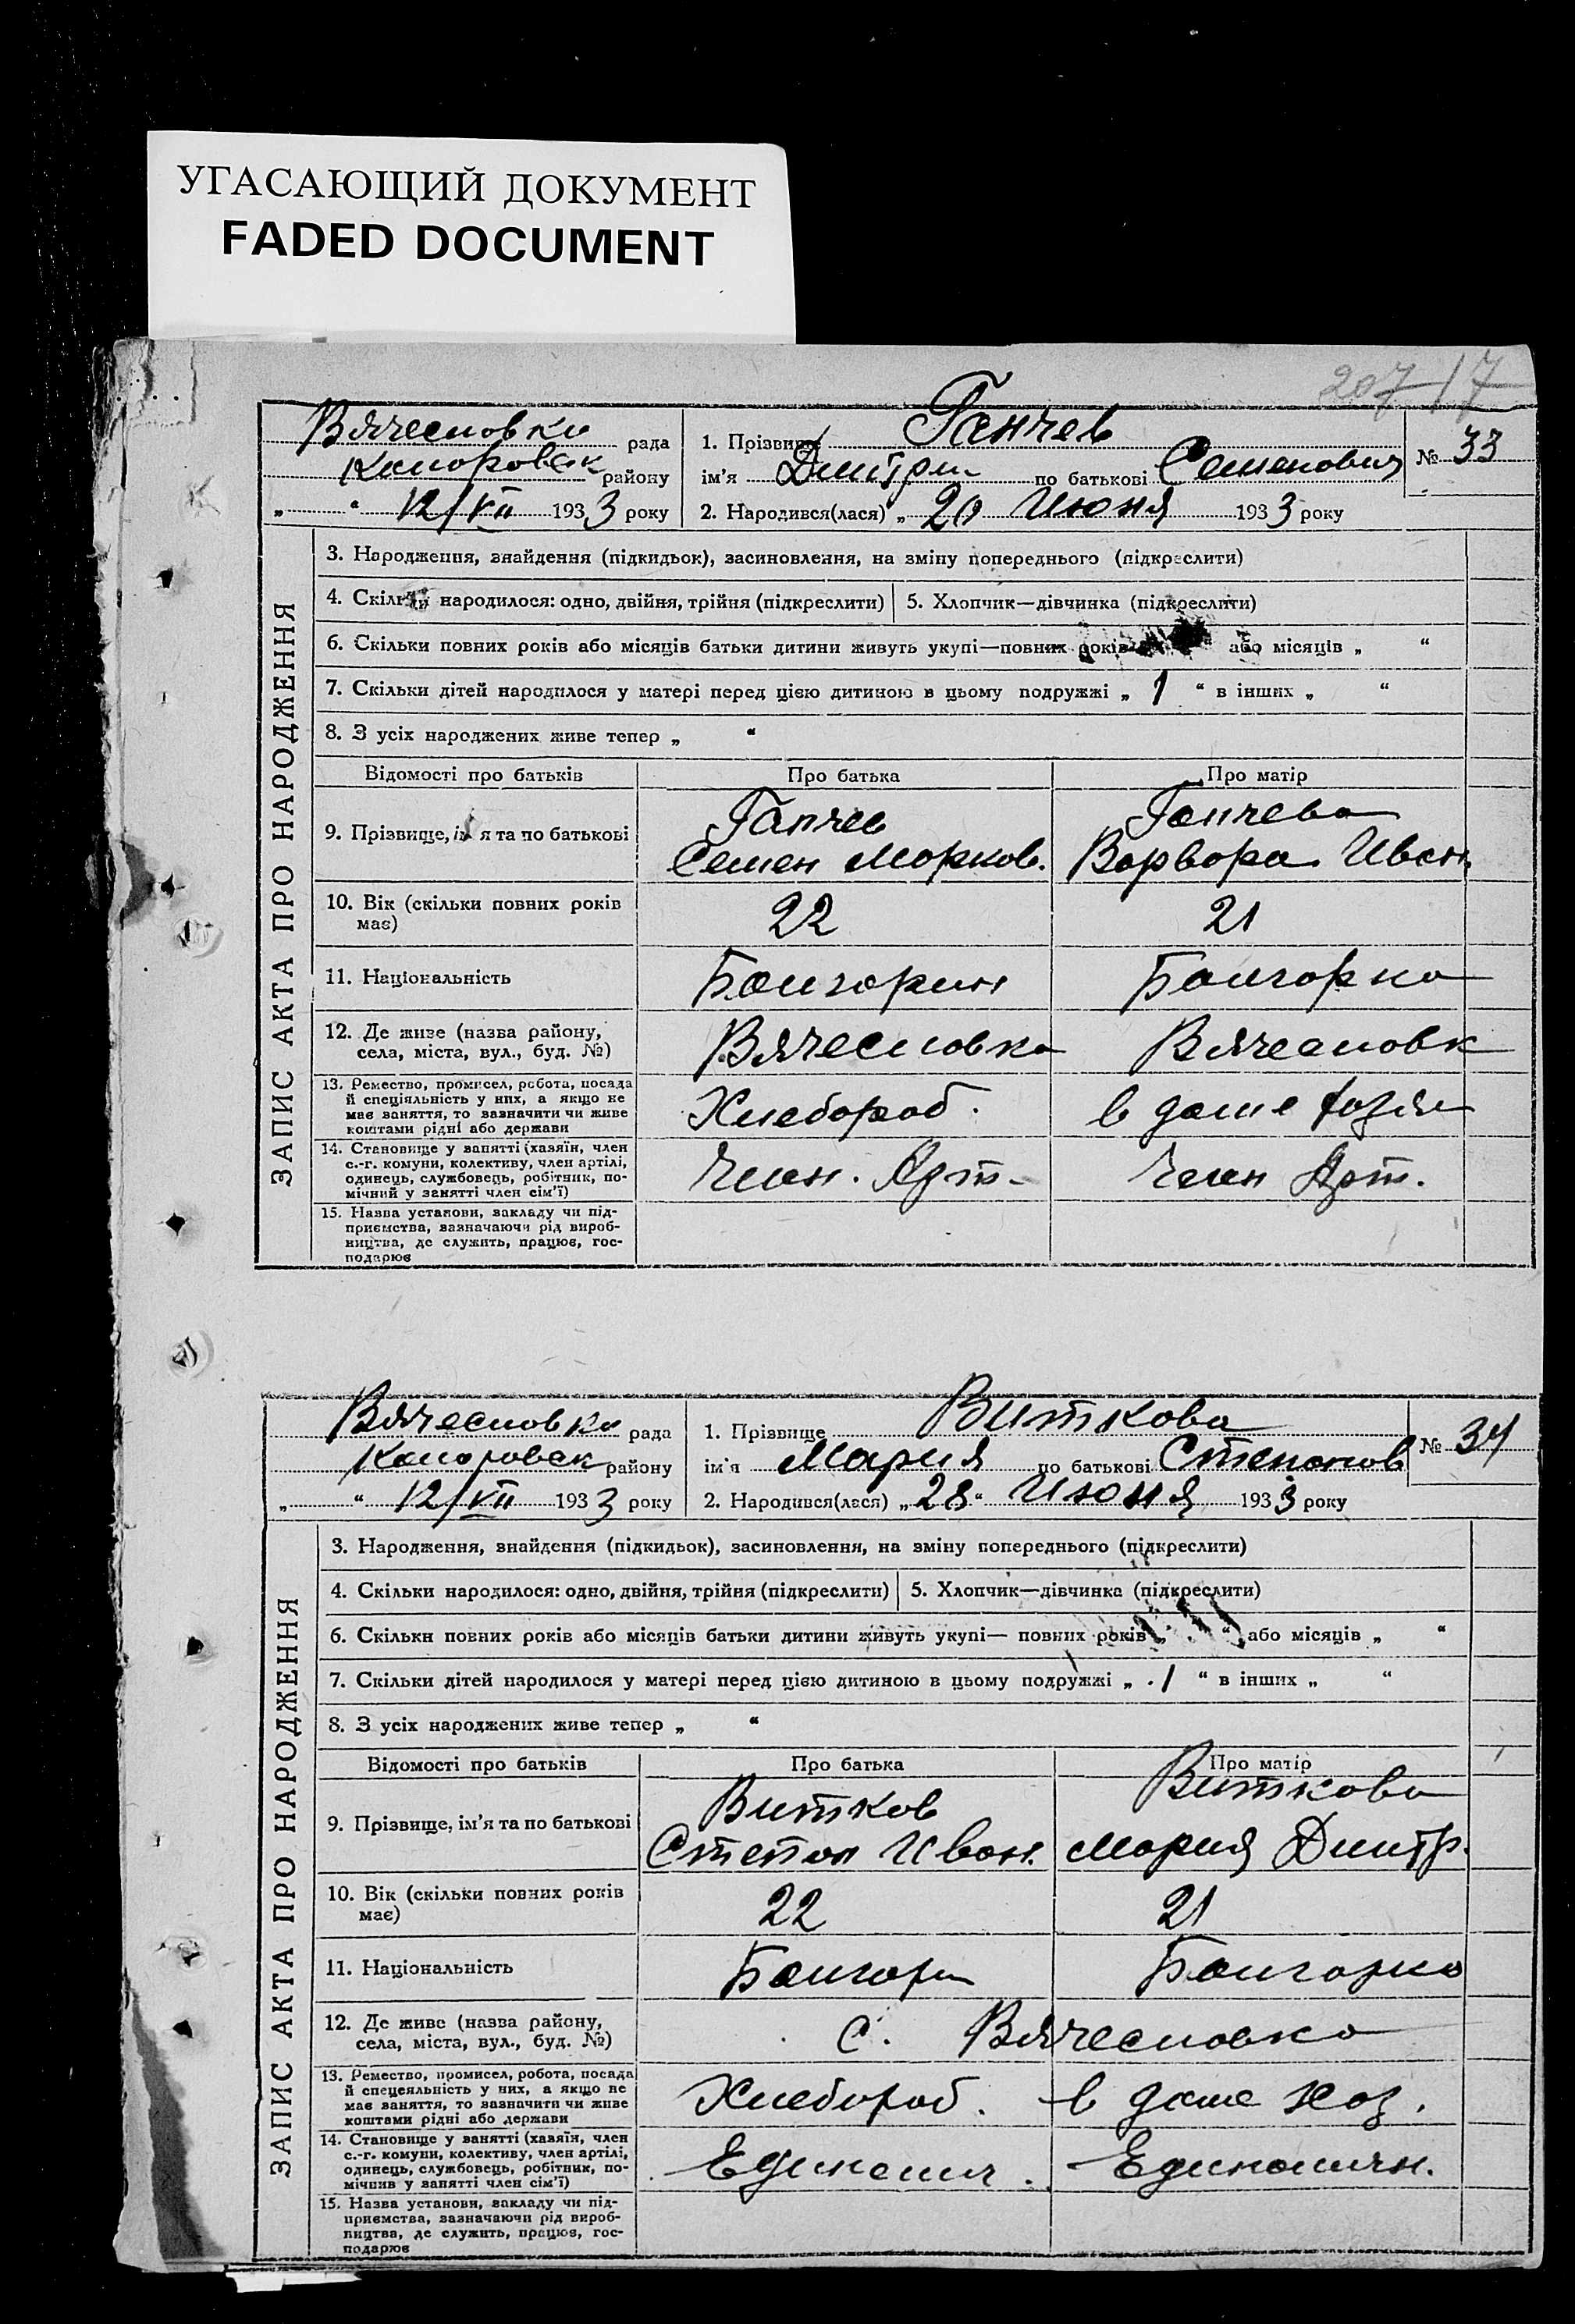 УГАСАЮЩИЙ ДОКУМЕНТ
FADED DOCUMENT
207 17
Вячесловка рада
Коларовск району
„ “ 12/VII 1933 року
1. Прізвище Ганчев
ім'я Дмитри по батькові Семенович
2. Народився(лася) „ 20 Июня 1933 року
№ 33
ЗАПИС АКТА ПРО НАРОДЖЕННЯ
3. Народження, знайдення (підкидьок), засиновлення, на зміну попереднього (підкреслити)
4. Скільки народилося: одно, двійня, трійня (підкреслити) 5. Хлопчик—дівчинка (підкреслити)
6. Скільки повних років або місяців батьки дитини живуть укупі—повних років або місяців „ “
7. Скільки дітей народилося у матері перед цією дитиною в цьому подружжі „ 1 “ в інших „ “
8. З усіх народжених живе тепер „ “
Відомості про батьків Про батька Про матір
9. Прізвище, ім'я та по батькові
Ганчев
Семен Марков.
Ганчева
Варвара Иван.
10. Вік (скільки повних років
має)
22 21
11. Національність Болгарин Болгарка
12. Де живе (назва району,
села, міста, вул., буд. №)
Вячесловка Вячесловк
13. Ремество, промисел, робота, посада
й спеціяльність у них, а якщо не
має заняття, то зазначити чи живе
коштами рідні або держави
Хлебороб. в доме
14. Становище у занятті (хазяїн, член
с.-г. комуни, колективу, член артілі,
одинець, службовець, робітник, по-
мічний у занятті член сім'ї)
Член. Арт. Член Арт.
15. Назва установи, закладу чи під-
приємства, зазначаючи рід вироб-
ництва, де служить, працює, гос-
подарює
Вячесловка рада
Коларовск району
„ “ 12/VII 1933 року
1. Прізвище Виткова
ім'я Мария по батькові Степанов
2. Народився(лася) „ 28 “ Июня 1933 року
№ 34
ЗАПИС АКТА ПРО НАРОДЖЕННЯ
3. Народження, знайдення (підкидьок), засиновлення, на зміну попереднього (підкреслити)
4. Скільки народилося: одно, двійня, трійня (підкреслити) 5. Хлопчик—дівчинка (підкреслити)
6. Скільки повних років або місяців батьки дитини живуть укупі— повних років „ “ або місяців „ “
7. Скільки дітей народилося у матері перед цією дитиною в цьому подружжі „ 1 “ в інших „ “
8. З усіх народжених живе тепер „ “
Відомості про батьків Про батька Про матір
9. Прізвище, ім'я та по батькові
Витков
Степан Иван.
Виткова
Мария Дмитр.
10. Вік (скільки повних років
має)
22 21
11. Національність Болгарин Болгарка
12. Де живе (назва району,
села, міста, вул., буд. №)
с. Вячесловка
13. Ремество, промисел, робота, посада
й спецеяльність у них, а якщо не
має заняття, то зазначити чи живе
коштами рідні або держави
Хлебороб. в доме хоз.
14. Становище у занятті (хазяїн, член
с.-г. комуни, колективу, член артілі,
одинець, службовець, робітник, по-
мічнив у занятті член сім'ї)
Единолич. Единоличн.
15. Назва установи, закладу чи під-
приємства, зазначаючи рід вироб-
ництва, де служить, працює, гос-
подарює